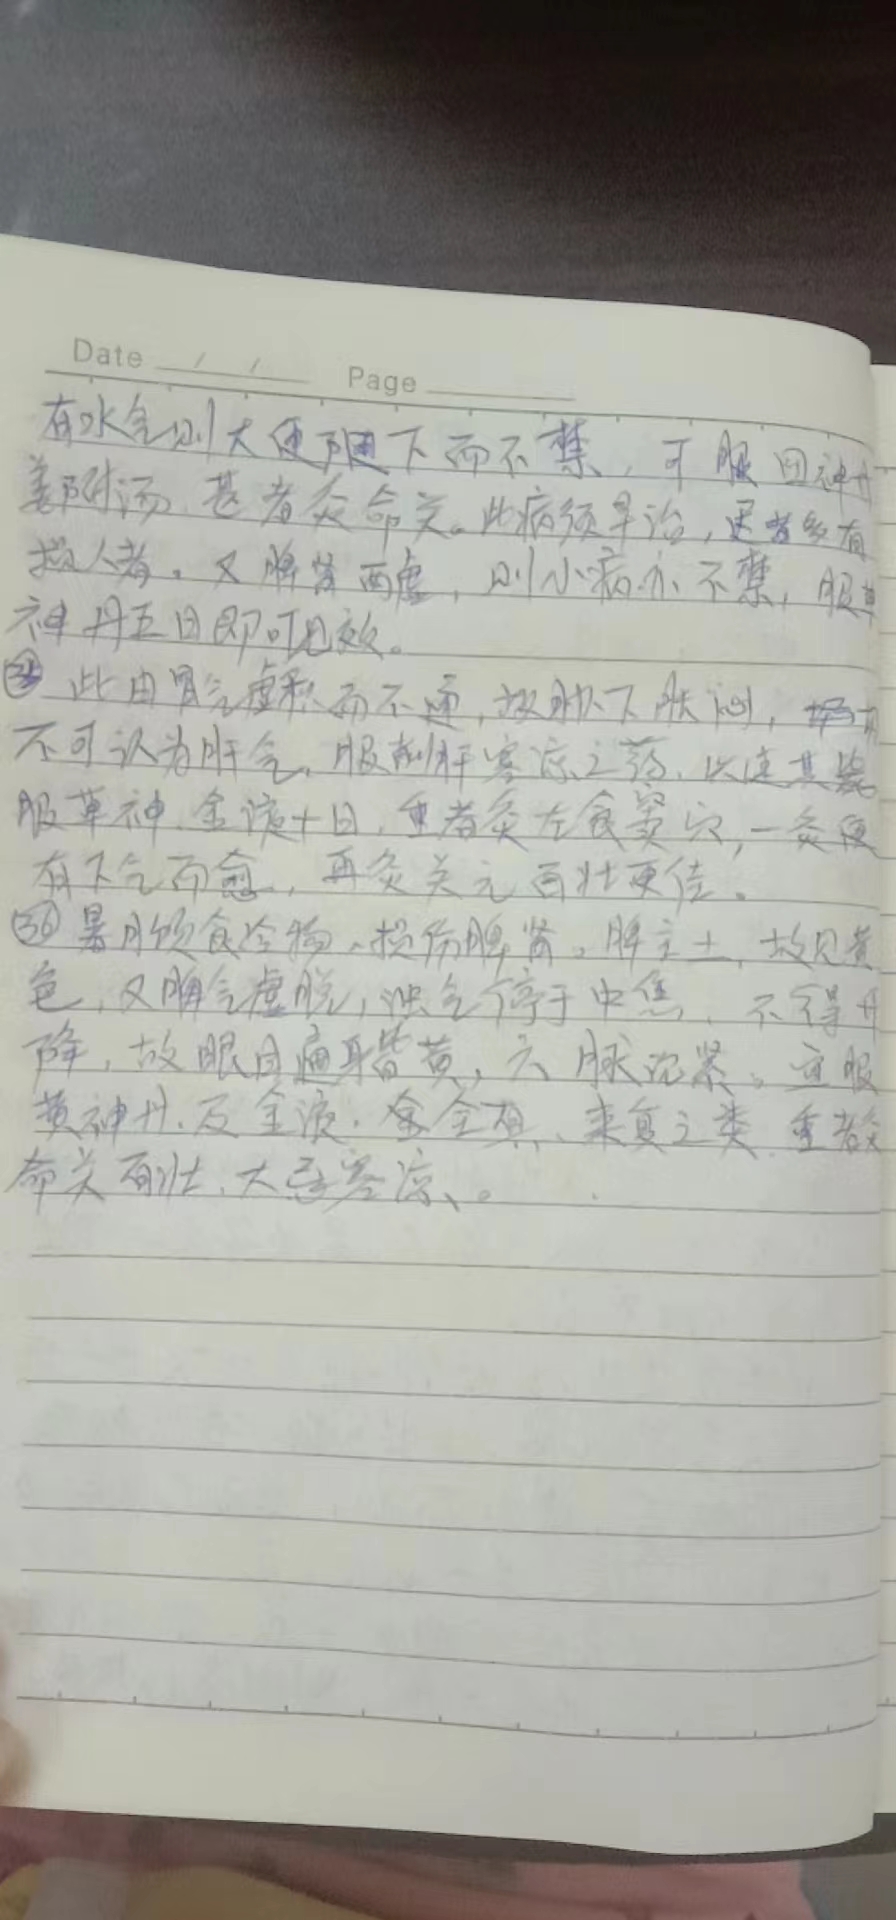 Date / / Page
有水气则大便随下而不禁，可服四神丹
姜附汤，甚者灸命关。此病须早治，迟者多有
损人者。又脾肾两虚，则小病亦不禁，服草
神丹五日即可见效。
㉟ 此由胃气虚积而不通，故胁下胀闷，
不可认为肝气，服削肝寒凉之药，以速其毙
服草神、金液十日，重者灸左食窦穴，一灸便
有下气而愈，再灸关元百壮更佳。
㊱ 暑月饮食冷物，损伤脾肾。脾主土，故见黄
色，又脾气虚脱，浊气停于中焦，不得升
降，故眼目遍身皆黄，六脉沉紧。宜服
黄神丹，及金液、全真、来复之类，重者灸
命关百壮，大忌寒凉、。